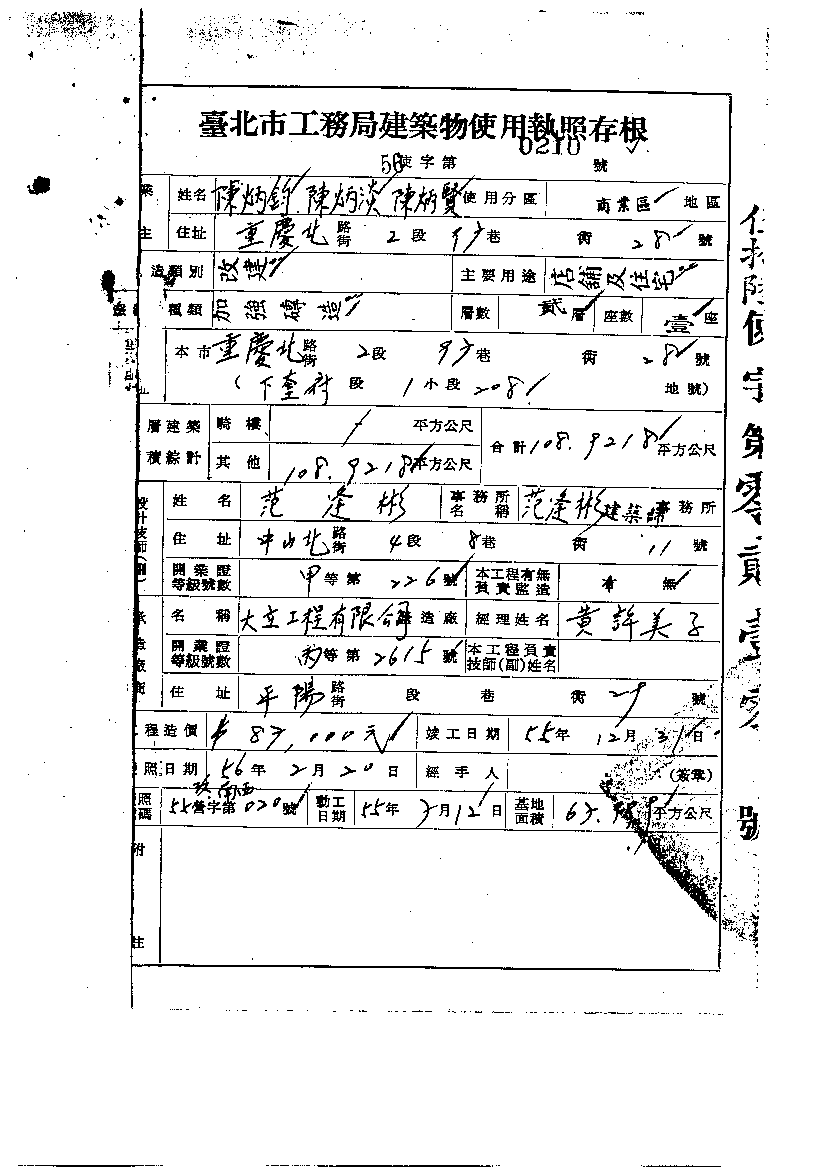 臺北市工務局建築物使用執照存根
56使字第 0210 號
姓名 陳炳鈞 陳炳淡 陳炳賢 使用分區 商業區 地區
主 住址 重慶北 路街 2段 巷 街 28 號
造類別 改建 主要用途 店舖及住宅
種類 加強磚造 層數 貳層 座數 壹座
本市 重慶北 路街 2段 巷 街 28 號
(下奎府 段 1小段 208 地號)
層建築 騎樓 平方公尺 合計 108.9218 平方公尺
積綜計 其他 108.9218 平方公尺
姓名 范逢彬 事務所名稱 范逢彬建築師事務所
住址 中山北 路街 4段 8巷 街 11 號
開業證等級號數 甲等第 226 號 本工程有無負責監造 有 無
名稱 大立工程有限公司 造廠 經理姓名 黃許美子
開業證等級號數 丙等第 2615 號 本工程負責技師(副)姓名
住址 平陽 路街 段 巷 街 29 號
程造價 竣工日期 55年12月31日
照日期 56年2月20日 經手人 (簽章)
照碼 55營字第 020 號 動工日期 55年 月12日 基地面積 平方公尺
附
註
使字第零貳壹零號